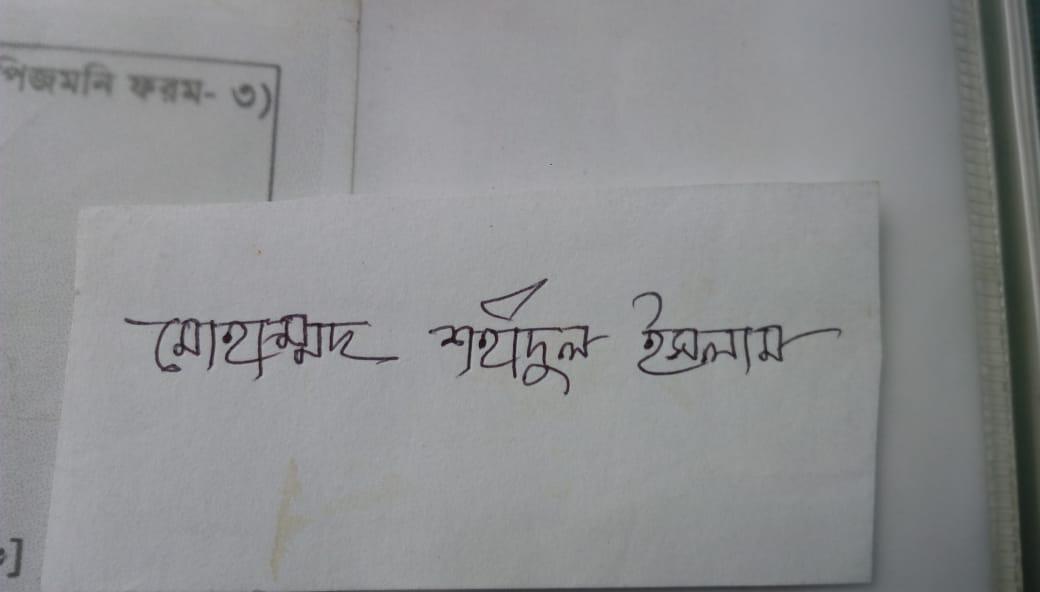 পিজমনি ফরম- ৩)
মোহাম্মদ শহীদুল ইসলাম
]